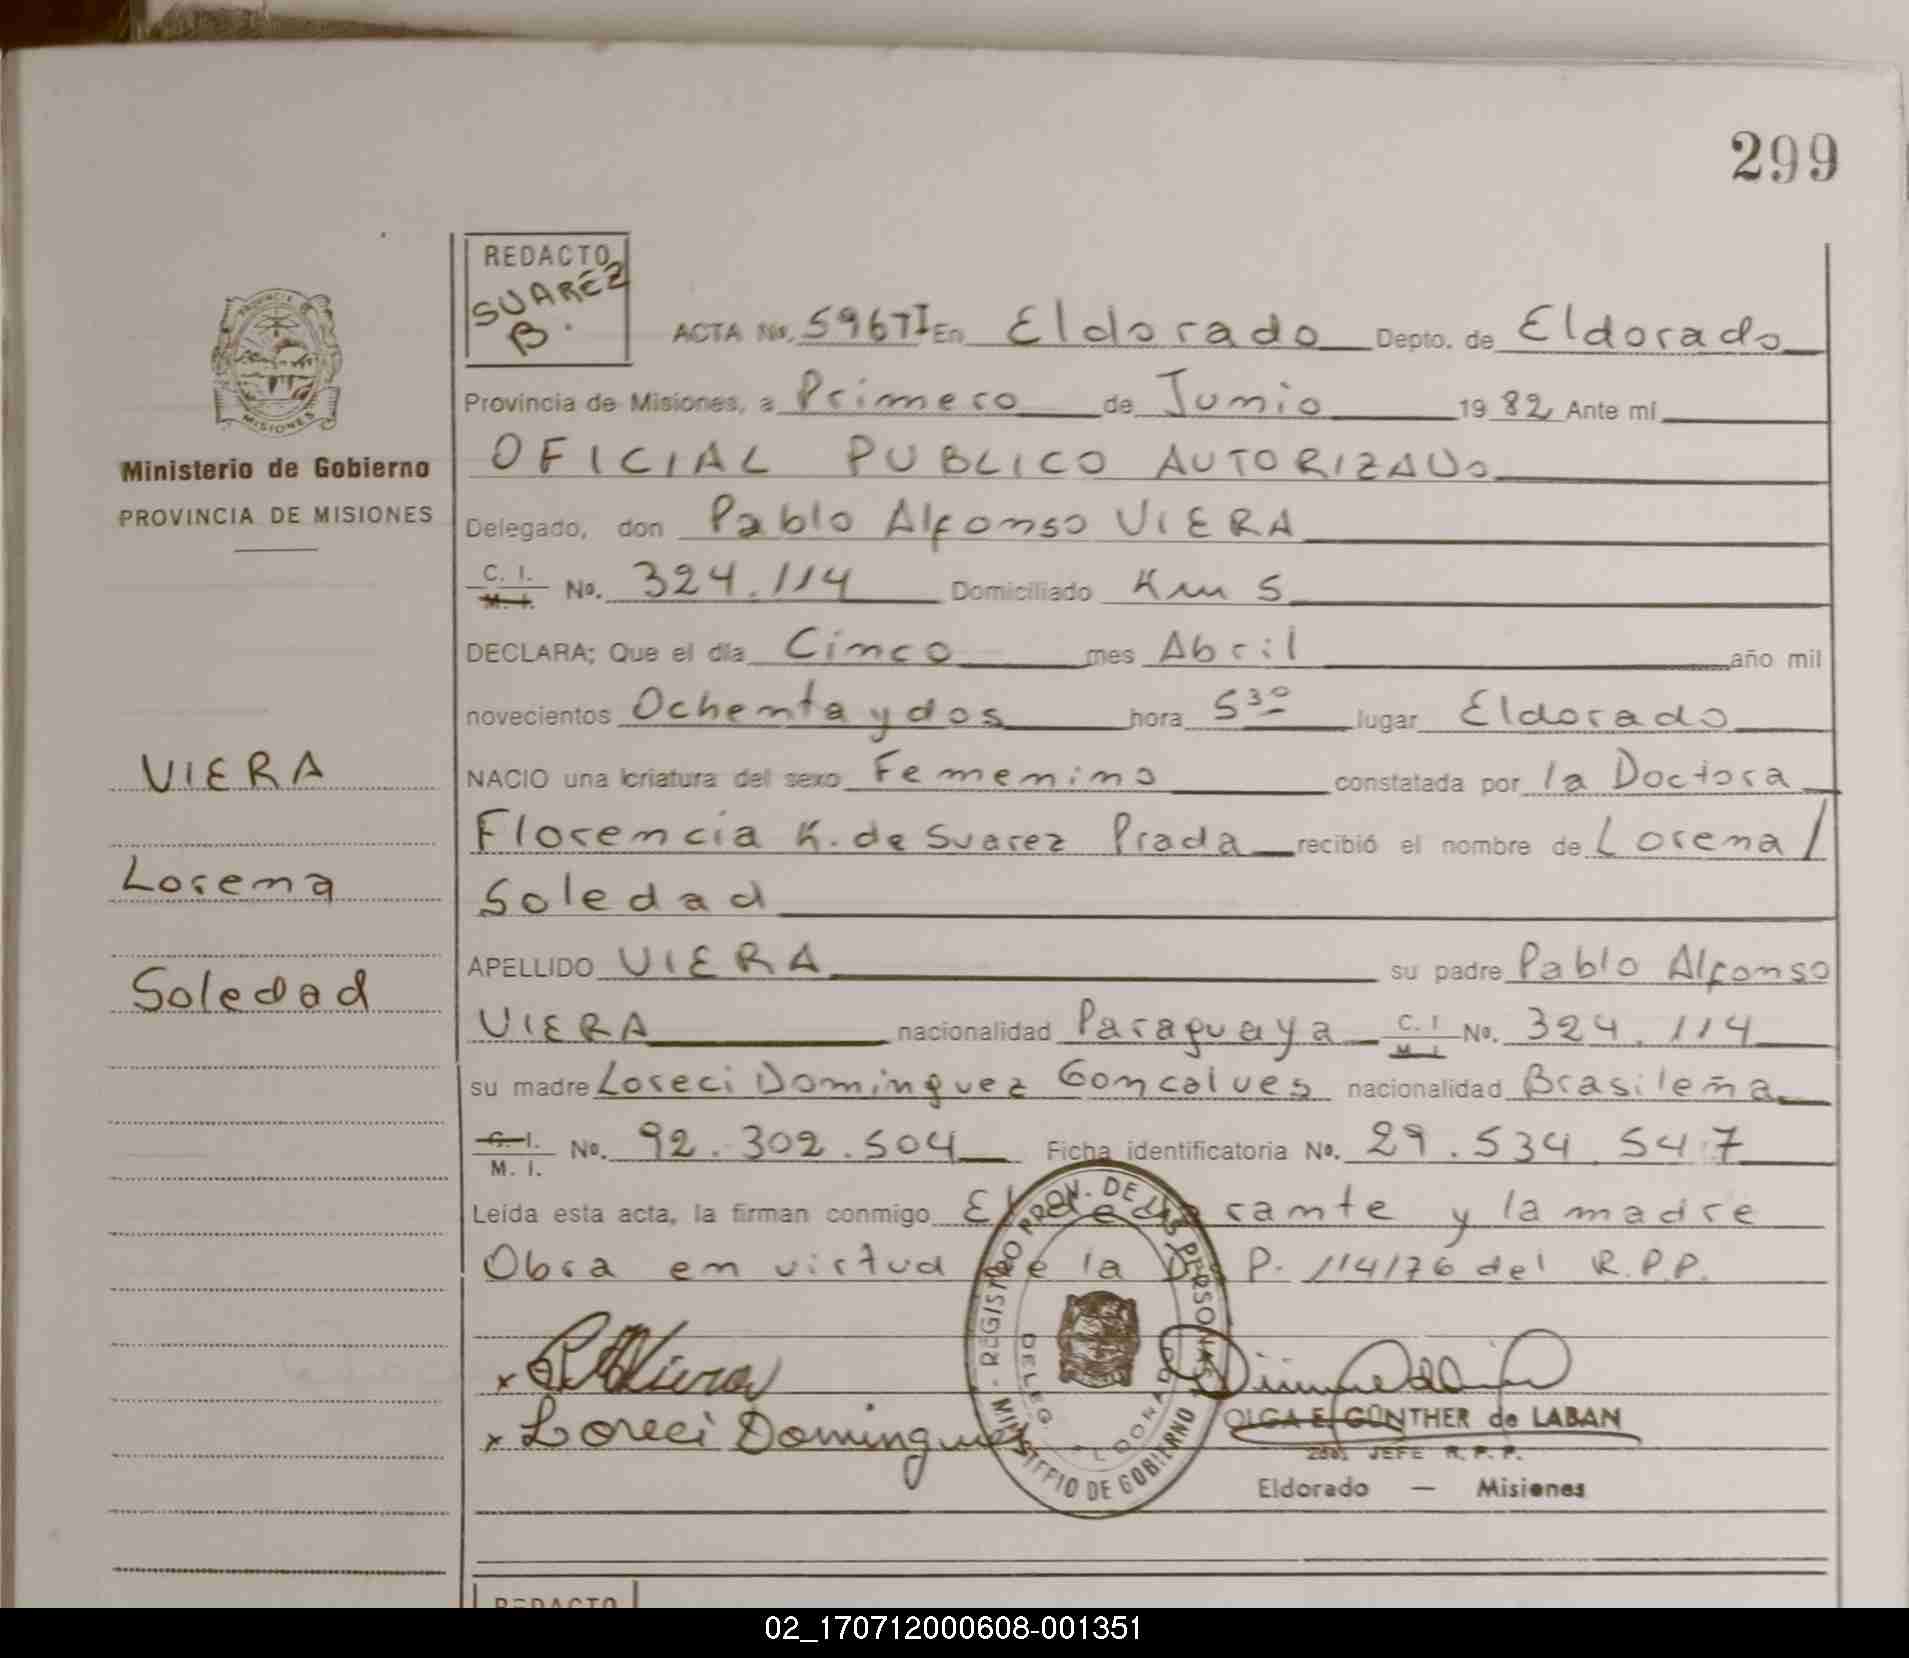 299
REDACTO
SUAREZ
B.
ACTA No. 596TI En Eldorado Depto. de Eldorado
Provincia de Misiones, a Primero de Junio 1982 Ante mí
OFICIAL PUBLICO AUTORIZADO
Delegado, don Pablo Alfonso VIERA
C. I. M. I. No. 324.114 Domiciliado Km 5
DECLARA; Que el día Cinco mes Abril año mil
novecientos Ochenta y dos hora 5 30 lugar Eldorado
NACIO una criatura del sexo Femenino constatada por la Doctora
Florencia K. de Suarez Prada recibió el nombre de Lorena/
Soledad
APELLIDO VIERA su padre Pablo Alfonso
VIERA nacionalidad Paraguaya C. I M. I. No. 324.114
su madre Loreci Dominguez Goncalves nacionalidad Brasileña
C. I. M. I. No. 92.302.504 Ficha identificatoria No. 29.534.547
Leída esta acta, la firman conmigo El declarante y la madre
Obra en virtud de la P. 114/76 del R.P.P.
x Viera
x Loreci Dominguez
OLGA E. GÜNTHER de LABAN
JEFE R. P. P.
Eldorado — Misiones
REGISTRO PROV. DE LAS PERSONAS
MINISTERIO DE GOBIERNO
DELEG. ELDORADO
PROVINCIA
MISIONES
Ministerio de Gobierno
PROVINCIA DE MISIONES
VIERA
Lorena
Soledad
REDACTO
02_170712000608-001351